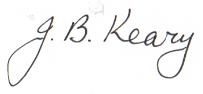 J. B. Keary